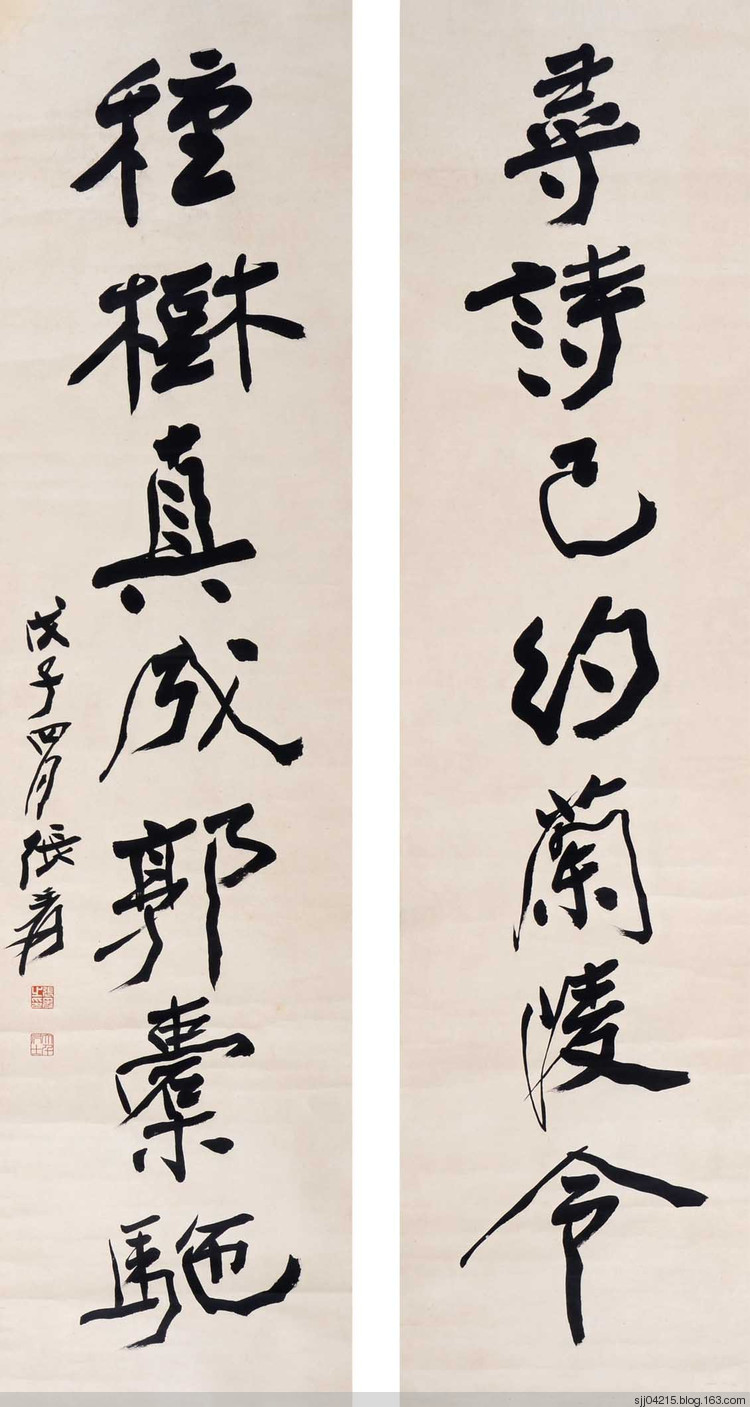 尋詩已約蘭陵令
種樹真成郭橐駞
戊子四月張爰
sjj04215.blog.163.com